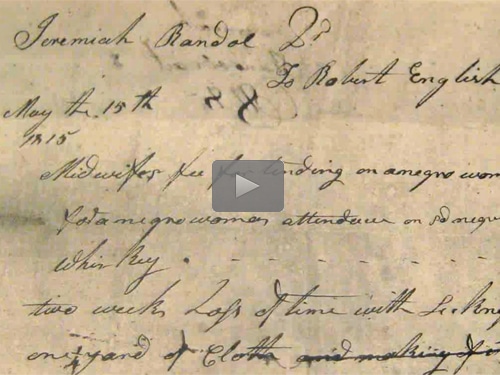 Jeremiah Randol Dr
To Robert English
May the 15th
1815
Midwifes fee for tending on a negro wom
for a negro woman attendance on sd negro
Whiskey
two weeks Loss of time with
one yard of Cloth and making of